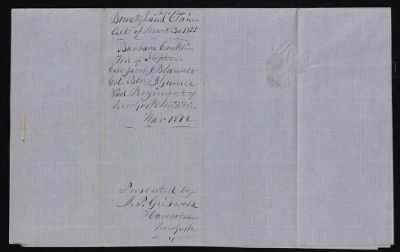 Bounty Land Claim
Act of March 3d 1855
Barbara Conklin
Wid of Stephen
Capt Jacob J Blauvelt
Col Ben J Gurnee
Regiment of
New York Militia
War 1812
Presented by
Griswold
Haverstraw
New York